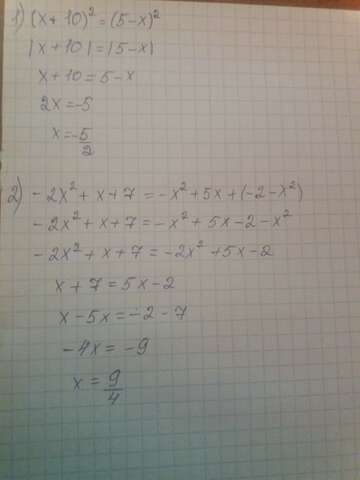 1) (x+10)² = (5-x)²
|x+10| = |5-x|
x+10 = 5-x
2x = -5
x = -5/2
2) -2x² + x + 7 = -x² + 5x + (-2-x²)
-2x² + x + 7 = -x² + 5x - 2 - x²
-2x² + x + 7 = -2x² + 5x - 2
x + 7 = 5x - 2
x - 5x = -2 - 7
-4x = -9
x = 9/4